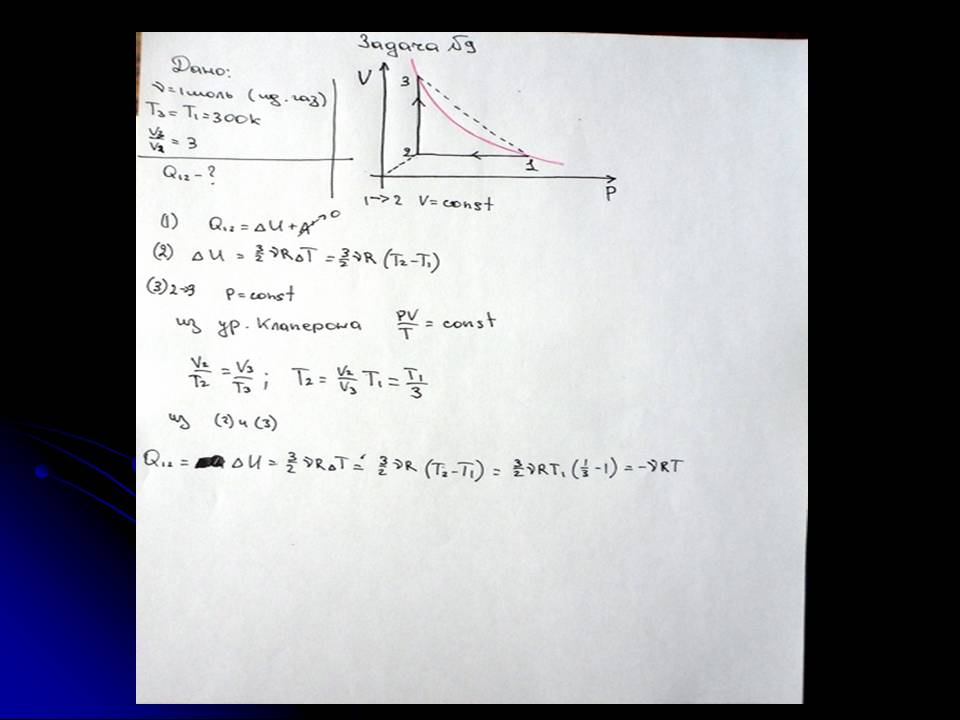 Задача №9
Дано:
ν=1моль (ид. газ)
T₃ = T₁ = 300К
V₃/V₂ = 3
Q₁₂ - ?
V
3
2
1
P
1→2 V=const
(1) Q₁₂ = ΔU + A→0
(2) ΔU = 3/2 νRΔT = 3/2 νR (T₂-T₁)
(3) 2→3 P = const
из ур. Клаперона PV/T = const
V₂/T₂ = V₃/T₃ ; T₂ = V₂/V₃ T₁ = T₁/3
из (2) и (3)
Q₁₂ = ΔU = 3/2 νRΔT = 3/2 νR (T₂-T₁) = 3/2 νRT₁ (1/3 -1) = -νRT